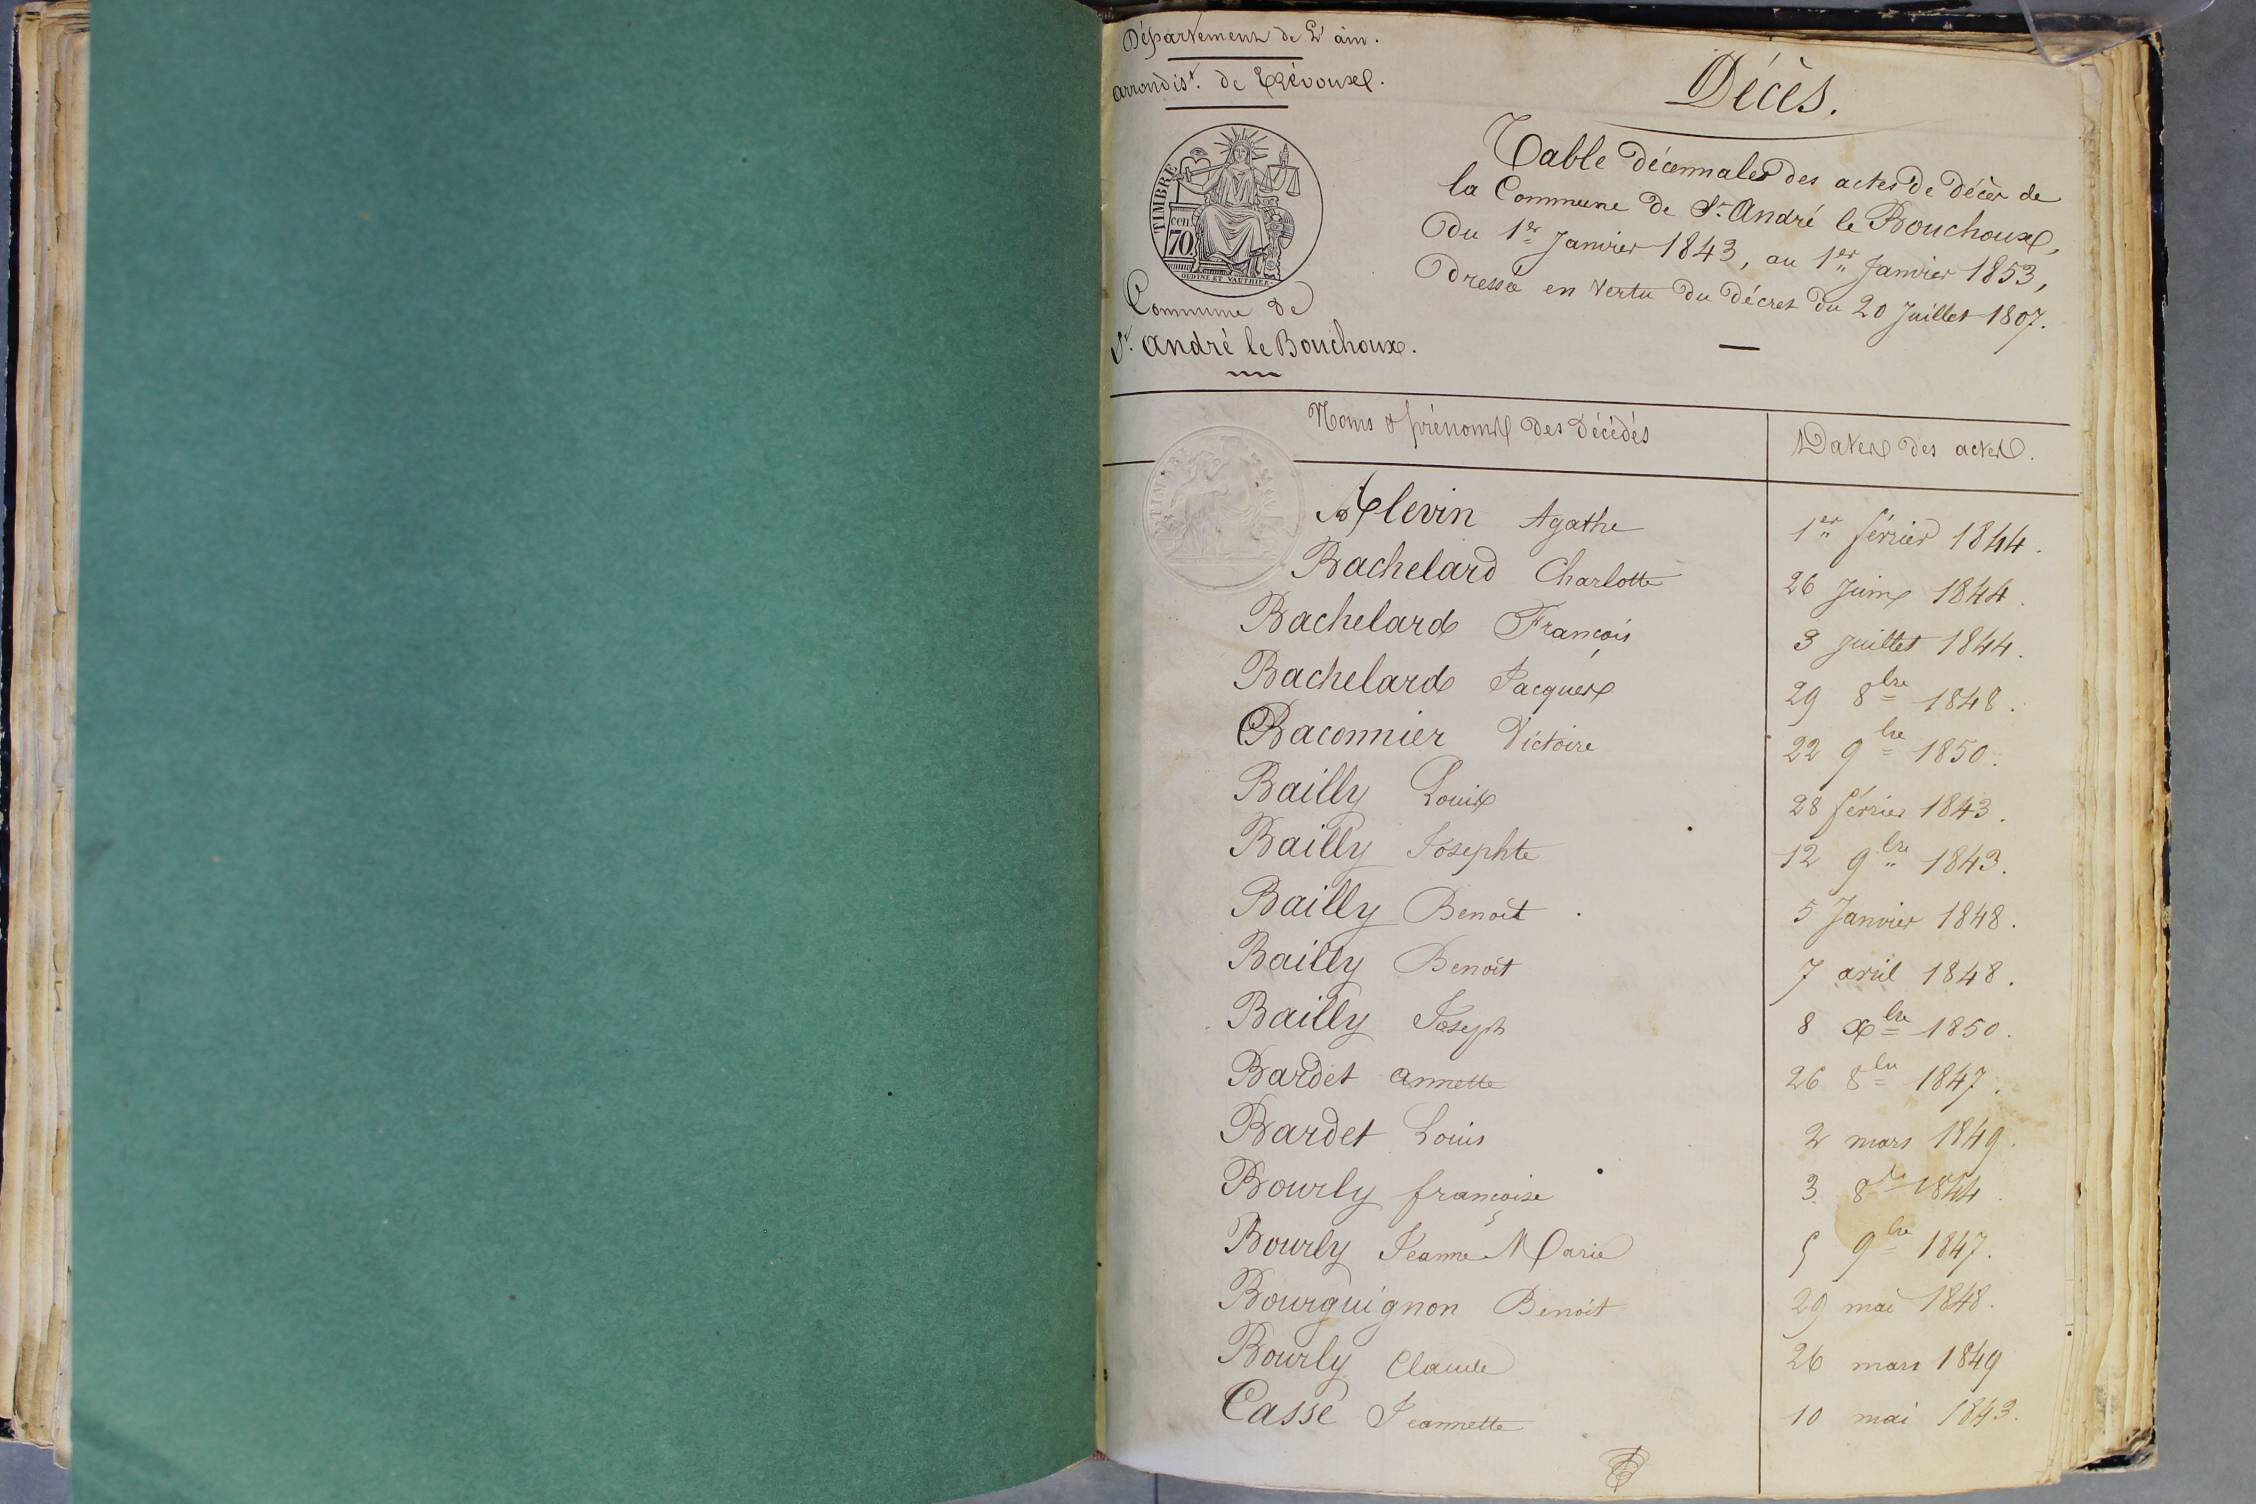 Département de L'ain.
arrondist. de Trévoux.
TIMBRE
CEN.
70.
OUDINE ET VAUTHIER
Commune de
St. andré le Bouchoux.
Décès.
Table décennales des actes de décès de
la Commune de St. André le Bouchoux,
Du 1er Janvier 1843, au 1er Janvier 1853,
Dressée en vertu du décret du 20 Juillet 1807.
Noms & prénoms des décédés
Dates des actes.
TIMBRE
Alevin Agathe 1er février 1844.
Bachelard Charlotte 26 Juin 1844.
Bachelard François 3 juillet 1844.
Bachelard Jacques 29 8bre 1848.
Baconnier Victoire 22 9bre 1850.
Bailly Louis 28 février 1843.
Bailly Josephte 12 9bre 1843.
Bailly Benoit 5 Janvier 1848.
Bailly Benoit 7 avril 1848.
Bailly Joseph 8 xbre 1850.
Bardet annette 26 8bre 1847.
Bardet Louis 2 mars 1849.
Bourly françoise 3 8bre 1844.
Bourly Jeanne Marie 5 9bre 1847.
Bourguignon Benoit 29 mai 1848.
Bourly Claude 26 mars 1849
Casse Jeannette 10 mai 1843.